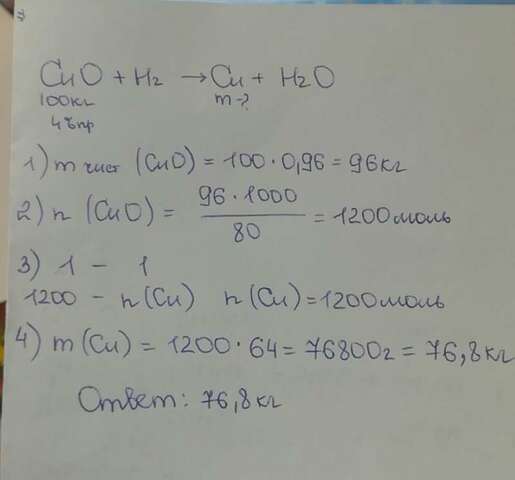 CuO + H2 → Cu + H2O
100кг m-?
4% пр
1) m чист (CuO) = 100 · 0,96 = 96кг
2) n (CuO) = 96 · 1000 / 80 = 1200моль
3) 1 - 1
1200 - n(Cu) n(Cu) = 1200моль
4) m(Cu) = 1200 · 64 = 76800г = 76,8кг
Ответ: 76,8кг